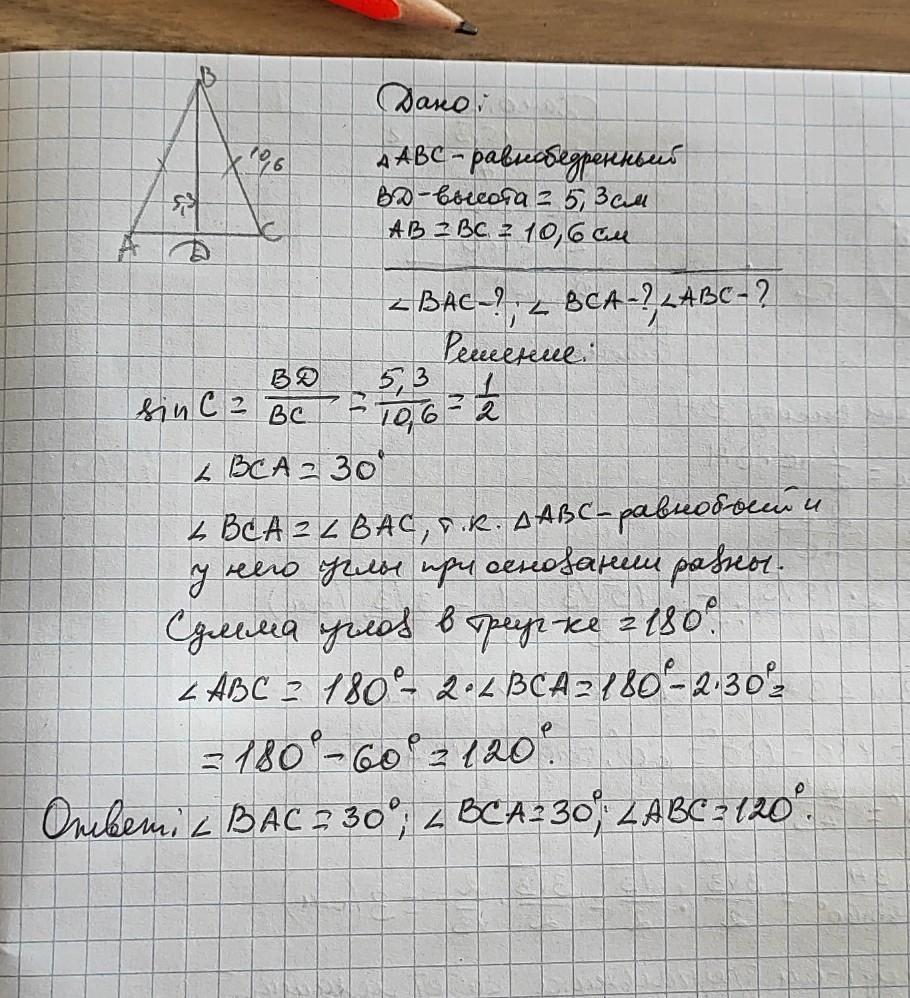 B
10,6
5,3
A
D
C
Дано:
△ABC - равнобедренный
BD - высота = 5,3 см
AB = BC = 10,6 см
∠BAC - ?; ∠BCA - ?, ∠ABC - ?
Решение:
sin C = BD/BC = 5,3/10,6 = 1/2
∠BCA = 30°
∠BCA = ∠BAC, т.к. △ABC - и
у него углы при основании равны.
Сумма углов в треуг-ке = 180°.
∠ABC = 180° - 2·∠BCA = 180° - 2·30° =
= 180° - 60° = 120°.
Ответ: ∠BAC = 30°; ∠BCA = 30°; ∠ABC = 120°.